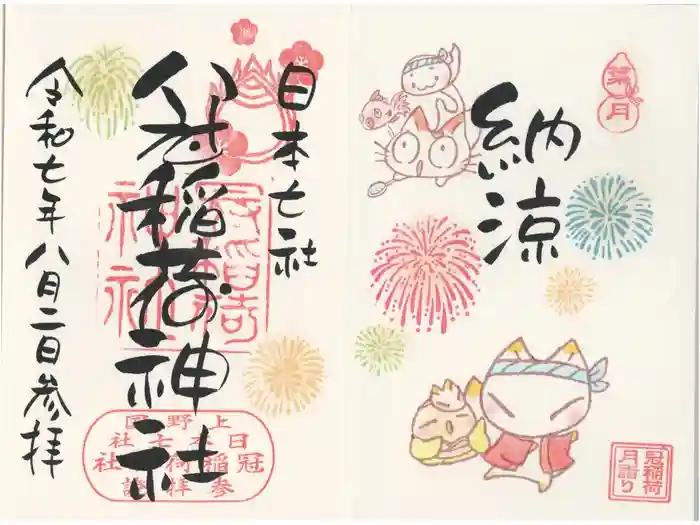 葉月
納涼
冠稲荷
月詣り
日本七社
冠稲荷神社
令和七年八月二日参拝
冠稲荷神社
上野国
日本七社
冠稲荷社
参拝證